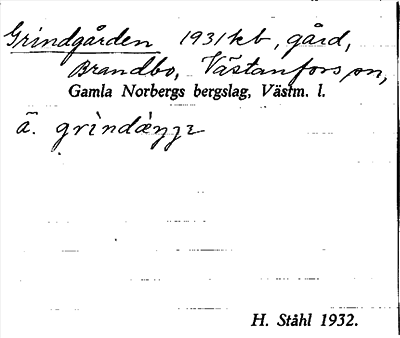 Grindgården 1931 kb, gård,
Brandbo, Västanfors sn,
Gamla Norbergs bergslag, Västm. l.
H. Ståhl 1932.